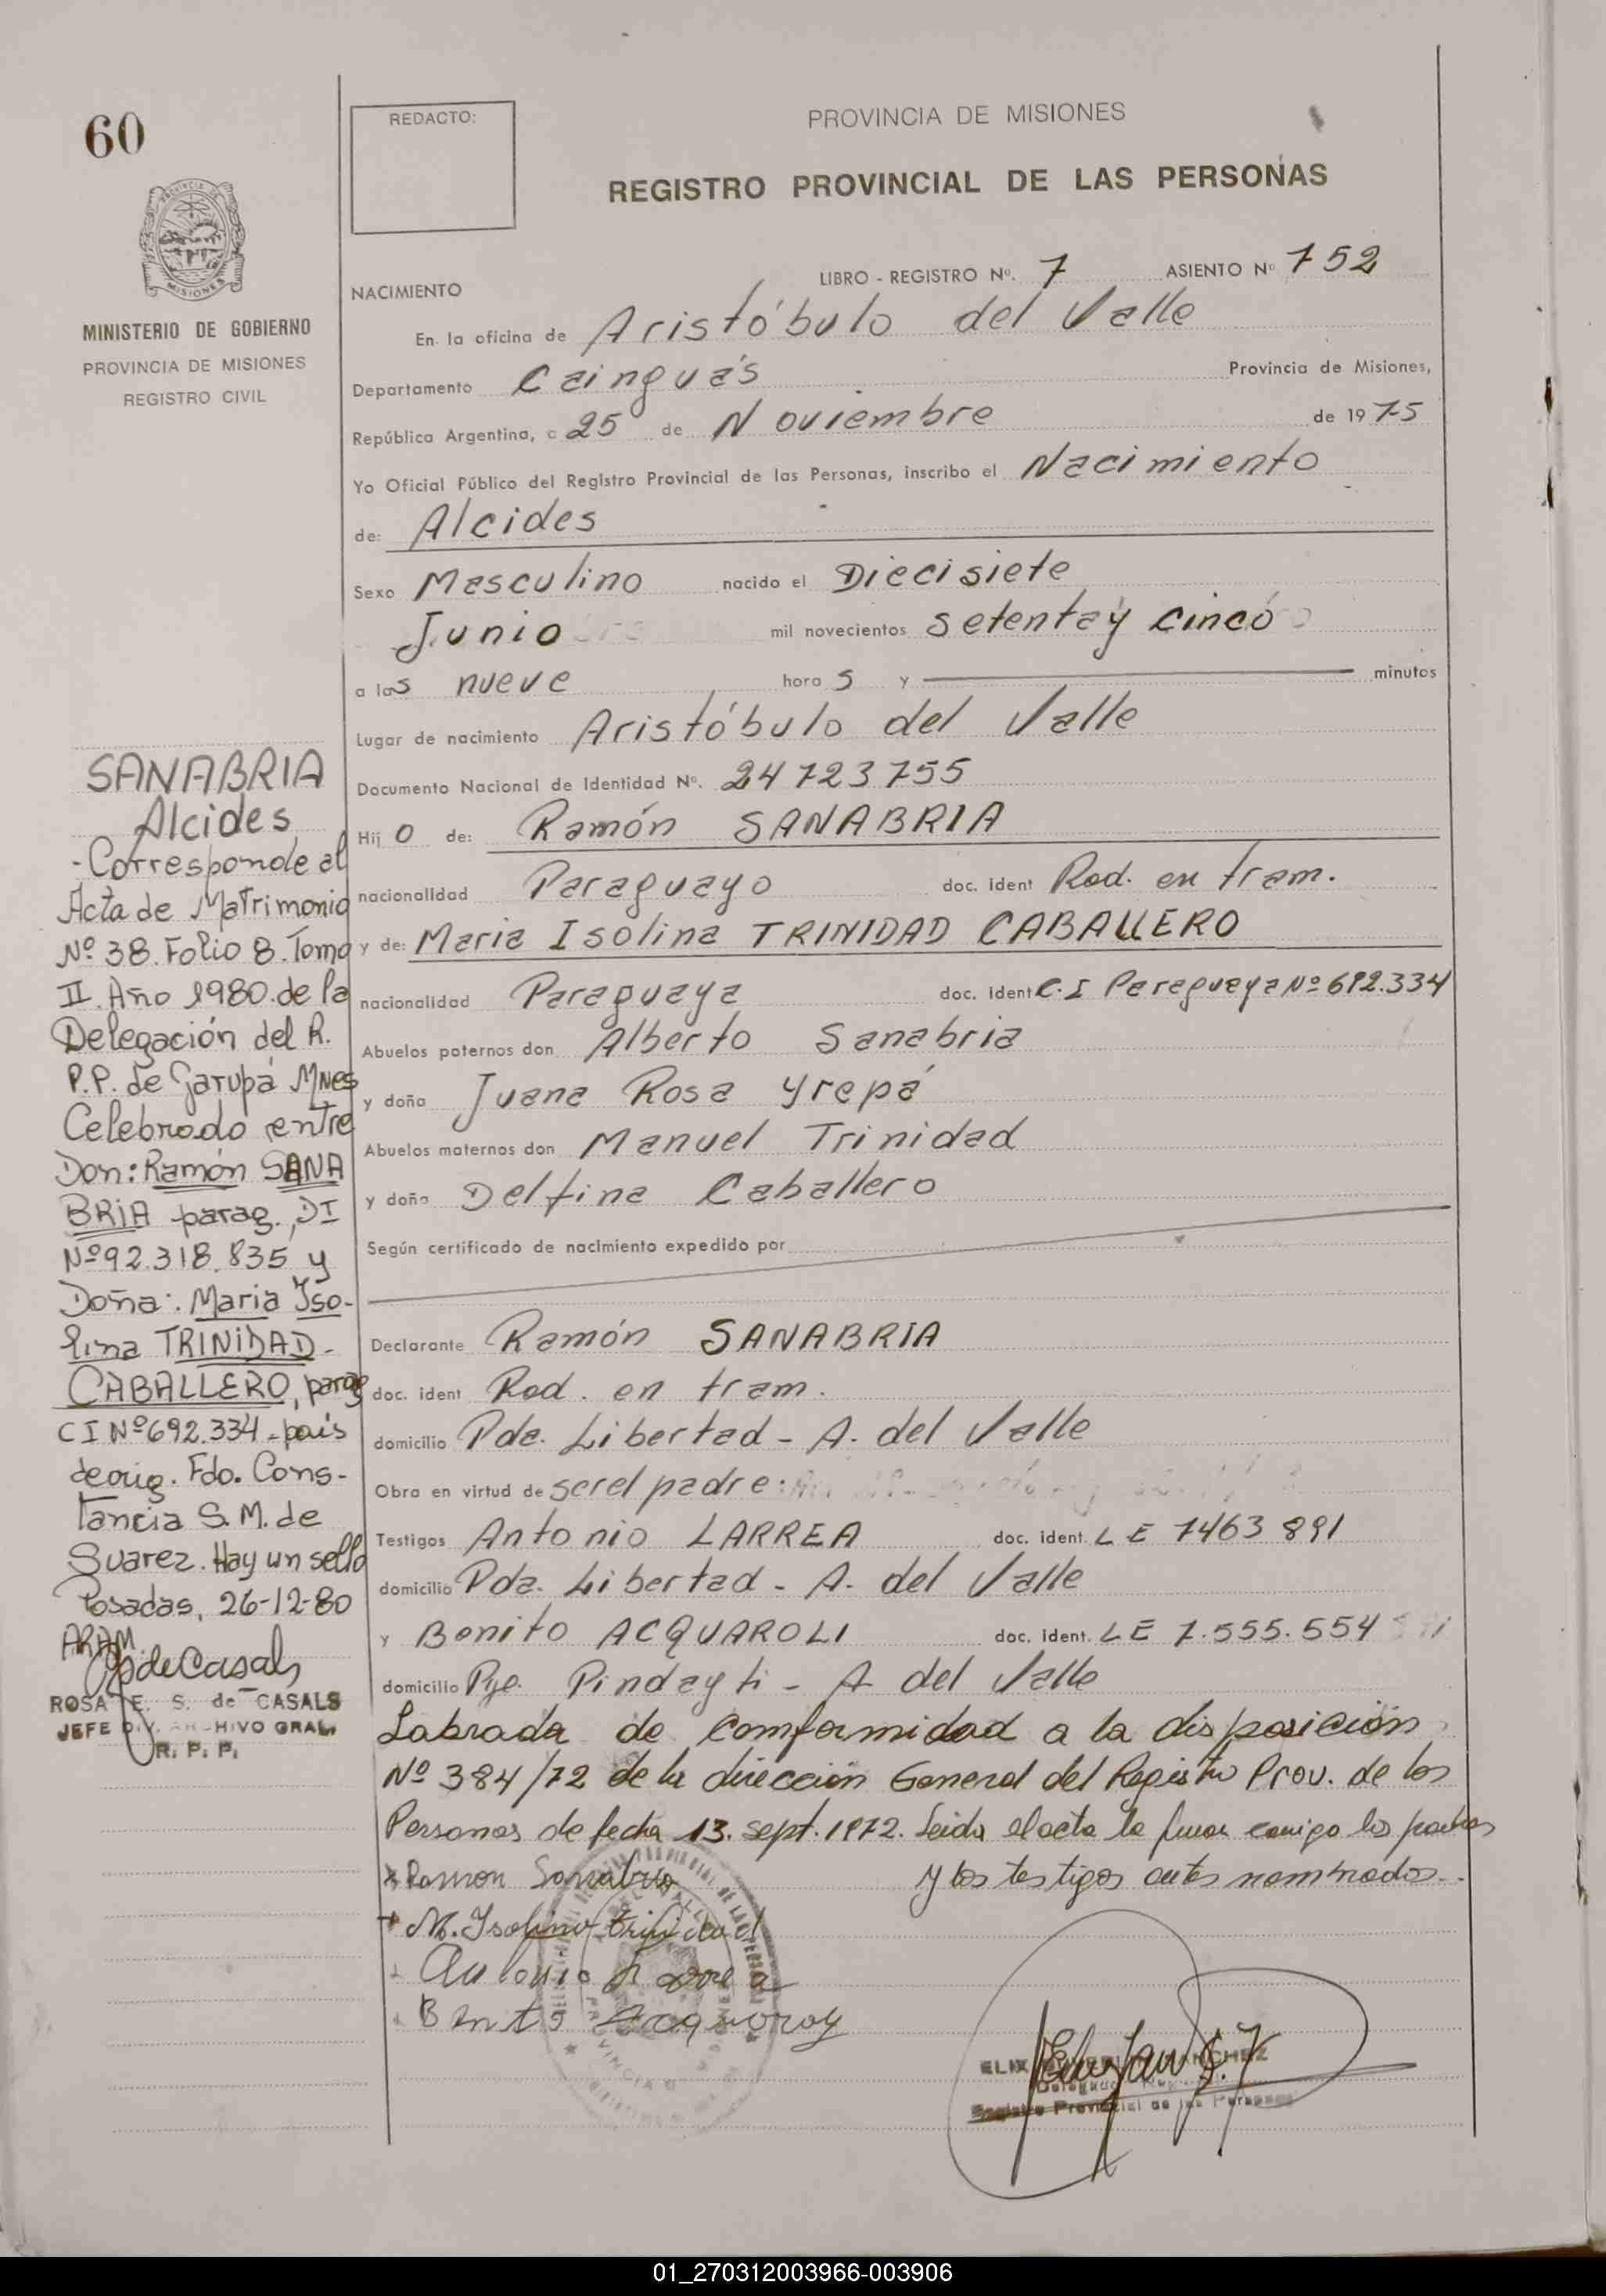 60
REDACTO:
PROVINCIA DE MISIONES
REGISTRO PROVINCIAL DE LAS PERSONAS
MISIONES
MINISTERIO DE GOBIERNO
PROVINCIA DE MISIONES
REGISTRO CIVIL
NACIMIENTO
LIBRO - REGISTRO Nº. 7 ASIENTO Nº 752
En la oficina de Aristóbulo del Valle
Departamento Cainguás Provincia de Misiones,
República Argentina, a 25 de Noviembre de 1975
Yo Oficial Público del Registro Provincial de las Personas, inscribo el Nacimiento
de: Alcides
Sexo Masculino nacido el Diecisiete
Junio mil novecientos setenta y cinco
a las nueve horas y minutos
Lugar de nacimiento Aristóbulo del Valle
Documento Nacional de Identidad Nº. 24723755
Hijo de: Ramón SANABRIA
nacionalidad Paraguayo doc. ident Rad. en tram.
y de: Maria Isolina TRINIDAD CABALLERO
nacionalidad Paraguaya doc. ident C.I Paraguaya Nº 692.334
Abuelos paternos don Alberto Sanabria
y doña Juana Rosa Yrepá
Abuelos maternos don Manuel Trinidad
y doña Delfina Caballero
Según certificado de nacimiento expedido por
Declarante Ramón SANABRIA
doc. ident Rad. en tram.
domicilio Pda. Libertad - A. del Valle
Obra en virtud de ser el padre:
Testigos Antonio LARREA doc. ident. LE 7463891
domicilio Pda. Libertad - A. del Valle
y Benito ACQUAROLI doc. ident. LE 7.555.554
domicilio Pje. Pindayti - A del Valle
Labrada de conformidad a la disposición
Nº 384/72 de la dirección General del Registro Prov. de las
Personas de fecha 13. sept. 1972. Leida el acta la firman conmigo los padres
y los testigos antes nombrados.
Ramon Sanabria
M. Isolina trinidad
Antonio Larrea
SANABRIA
Alcides
-Corresponde al
Acta de Matrimonio
Nº 38. Folio 8. Tomo
II. Año 1980. de la
Delegación del R.
P.P. de Garupá Mnes
Celebrado entre
Don: Ramón SANA
BRIA parag., DI
Nº 92.318.835 y
Doña: Maria Iso-
lina TRINIDAD-
CABALLERO, parag
CI Nº 692.334 - pais
de orig. Fdo. Cons-
tancia S.M. de
Suarez. Hay un sello
Posadas, 26-12-80
ARAM.
ROSA E. S. de CASALS
JEFE DIV. ARCHIVO GRAL.
R. P. P.
Registro Provincial de las Personas
01_270312003966-003906